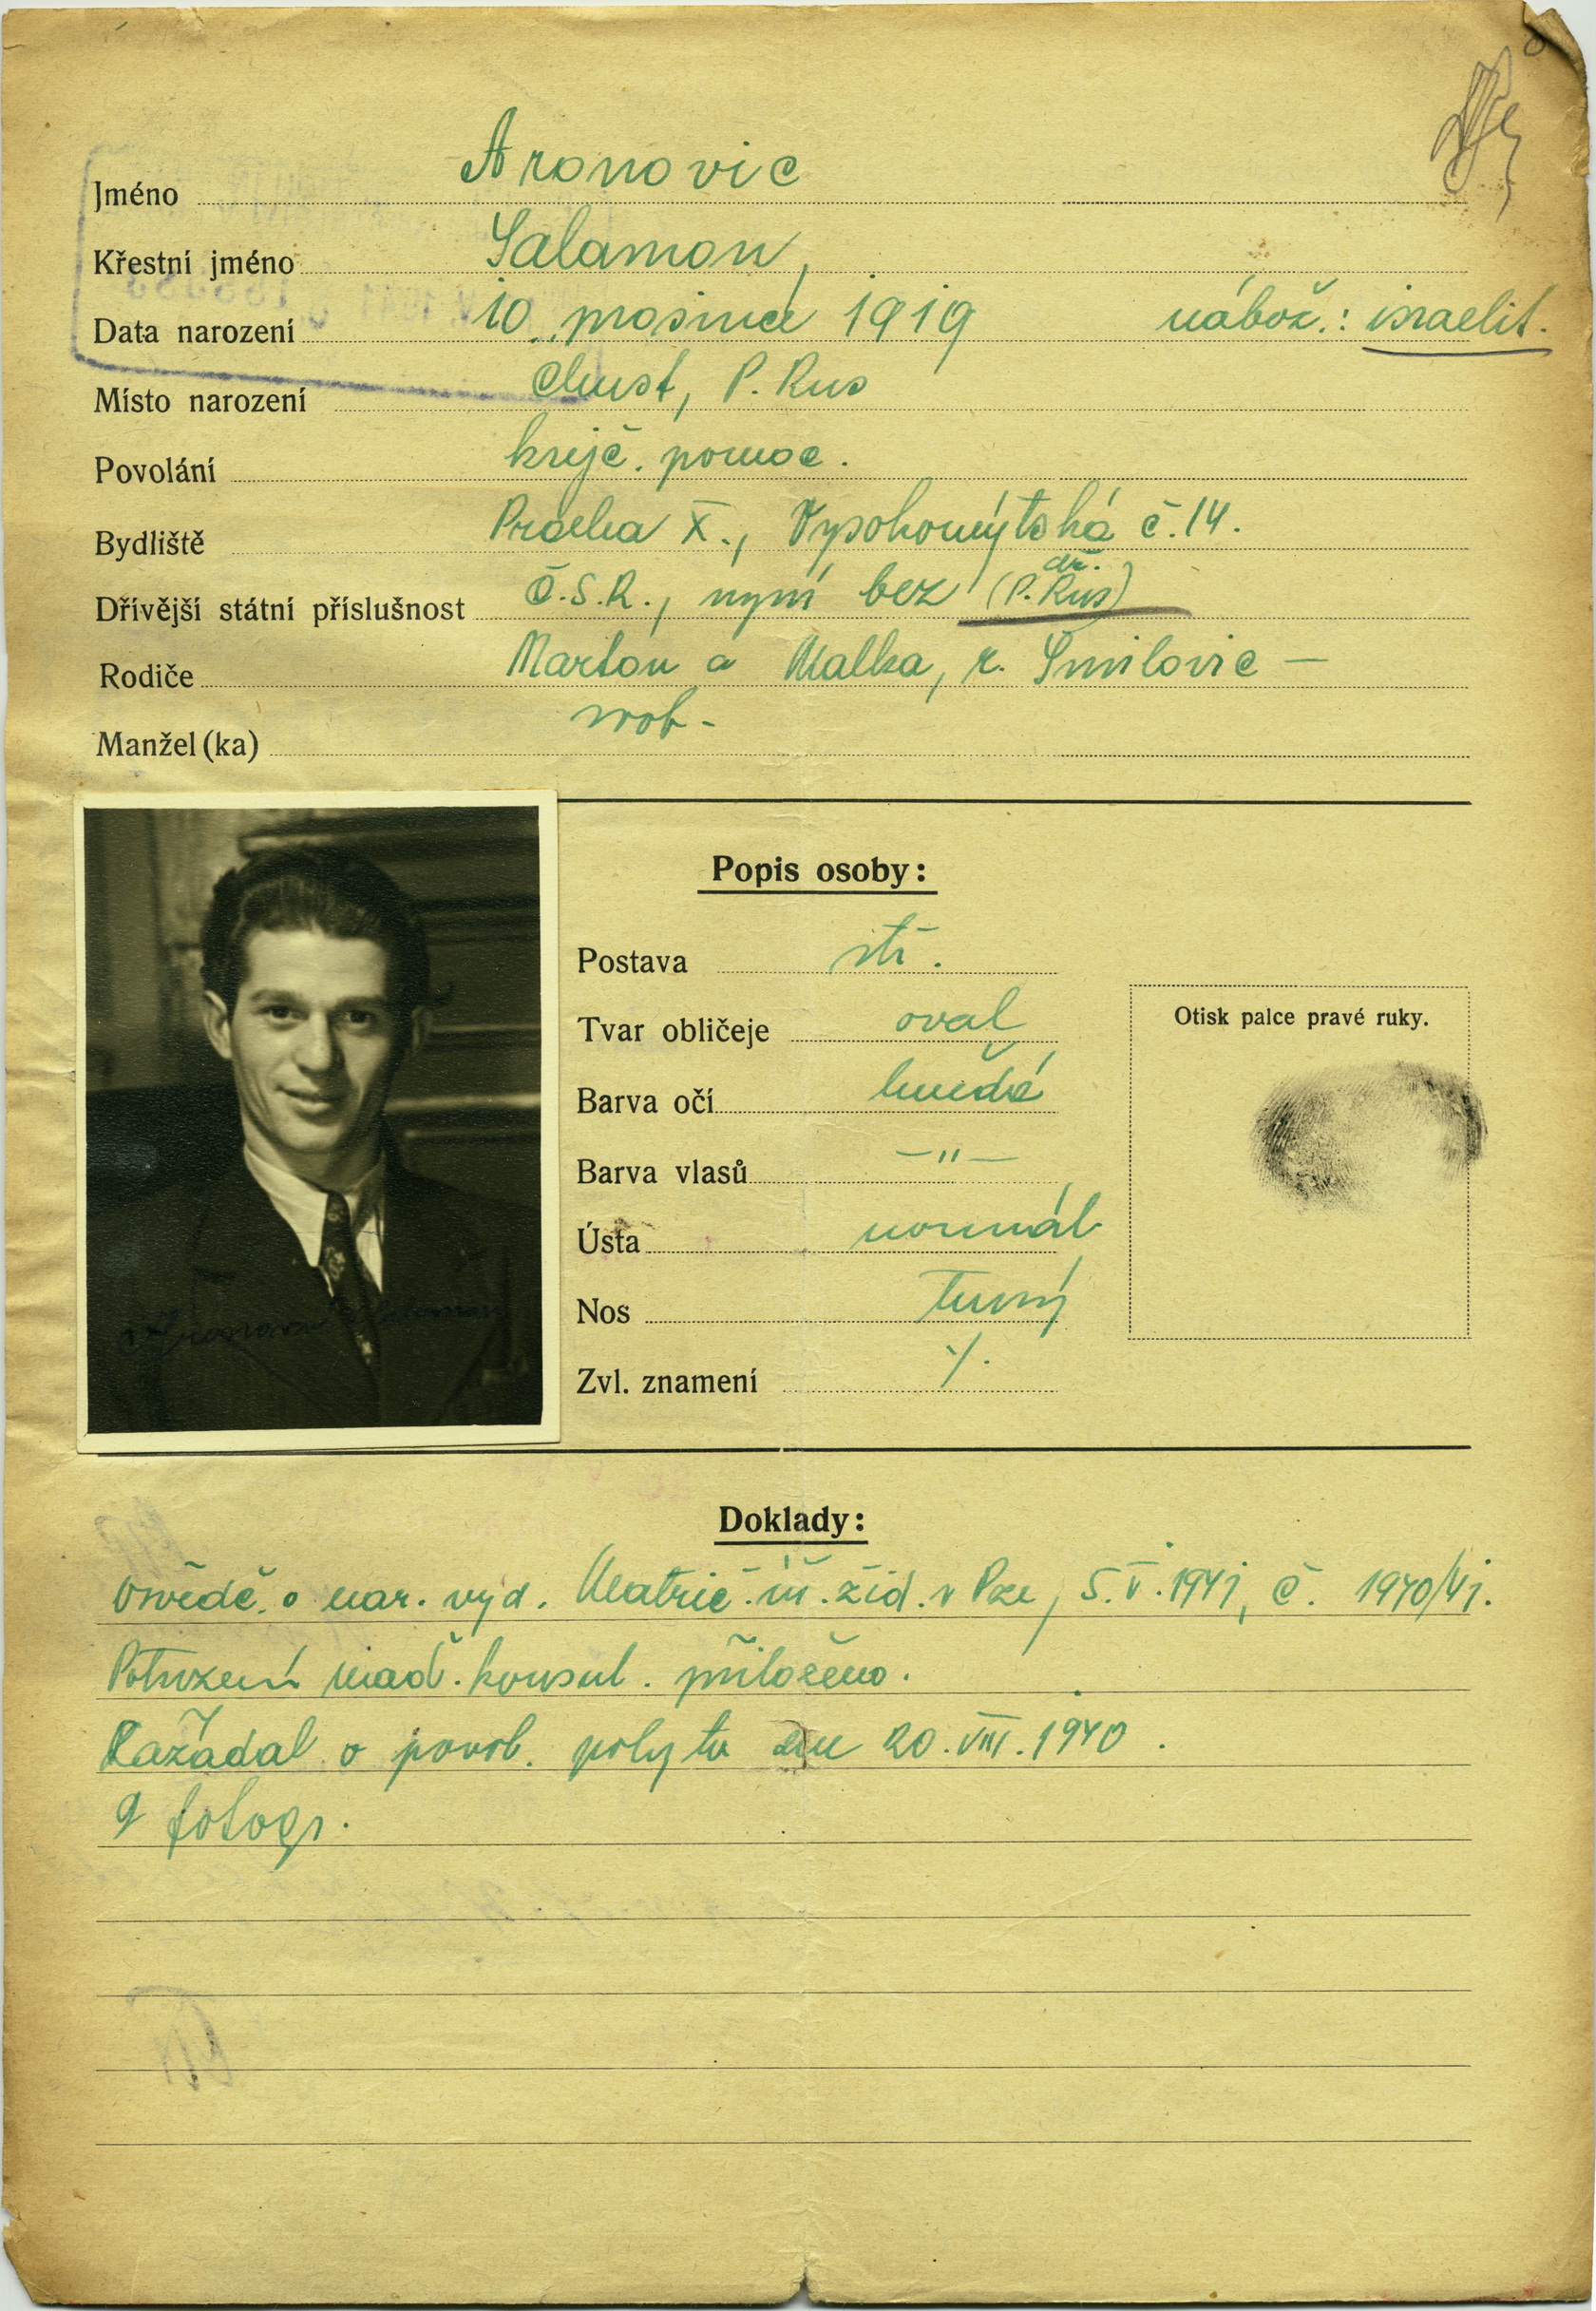 Jméno Aronovic
Křestní jméno Salamon,
Data narození 10. prosince 1919 nábož.: israelit.
Místo narození Chust, P. Rus
Povolání krejč. pomoc.
Bydliště Praha X., Vysokomýtská č. 14.
dř.
Dřívější státní příslušnost Č.S.R., nyní bez (P. Rus)
Rodiče Marton a Malka, r. Smilovic —
Manžel(ka) svob-
Popis osoby:
Postava stř.
Tvar obličeje oval
Otisk palce pravé ruky.
Barva očí hnědé
Barva vlasů —"—
Ústa normál
Nos rovný
Zvl. znamení ·/.
Aronovic Salamon
Doklady:
Osvědč. o nar. vyd. Matrič. úř. žid. v Pze, 5.V.1941, č. 1940/41.
Potvrzení maď. konsul. přiloženo.
Zažádal o povol. pobytu dne 20.VIII.1940.
9 fotogr.